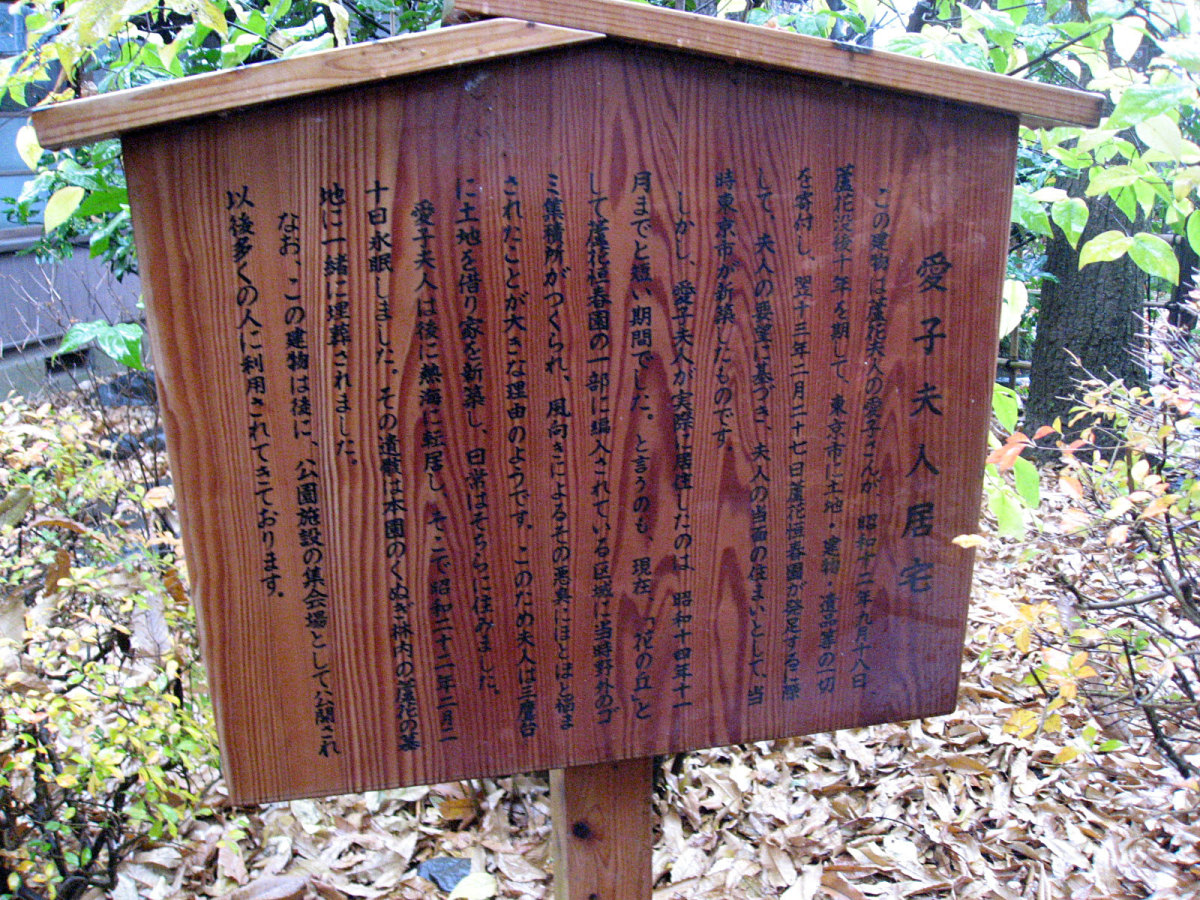 愛子夫人居宅
この建物は蘆花夫人の愛子さんが、昭和十二年九月十八日、
蘆花没後十年を期して、東京市に土地・建物・遺品等の一切
を寄付し、翌十三年二月二十七日蘆花恒春園が発足するに際
して、夫人の要望に基づき、夫人の当面の住まいとして、当
時東京市が新築したものです。
しかし、愛子夫人が実際に居住したのは、昭和十四年十一
月までと短い期間でした。と言うのも、現在、「花の丘」と
して蘆花恒春園の一部に編入されている区域に当時野外のゴ
ミ集積所がつくられ、風向きによるその悪臭にほとほと悩ま
されたことが大きな理由のようです。このため夫人は三鷹台
に土地を借り家を新築し、日常はそちらに住みました。
愛子夫人は後に熱海に転居し、そこで昭和二十二年二月二
十日永眠しました。その遺骸は本園のくぬぎ林内の蘆花の墓
地に一緒に埋葬されました。
なお、この建物は後に、公園施設の集会場として公開され
以後多くの人に利用されてきております。